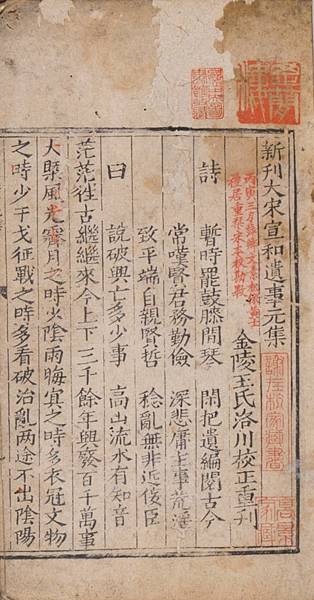 新刊大宋宣和遺事元集
金陵王氏洛川校正重刊
詩 暫時罷鼓膝間琴 閑把遺編閱古今
常嘆賢君務勤儉 深悲庸主事荒淫
致平端自親賢哲 稔亂無非近佞臣
曰 說破興亡多少事 高山流水有知音
茫茫徃古繼繼來今上下三千餘年興廢百千萬事
大槩風光霽月之時少陰雨晦冥之時多衣冠文物
之時少干戈征戰之時多看破治亂两途不出陰陽
謝在杭家藏書